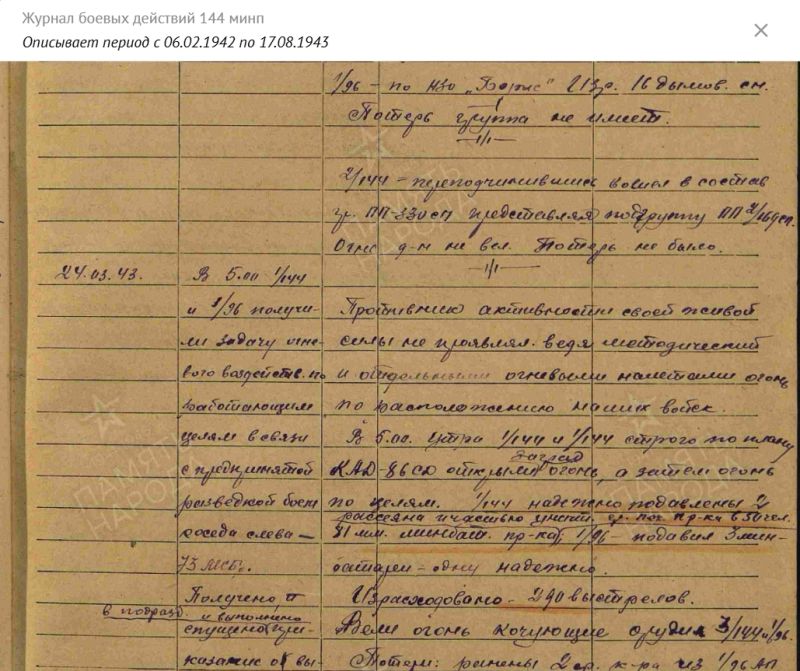 Журнал боевых действий 144 минп
Описывает период с 06.02.1942 по 17.08.1943
1/96 – по НЗО „Борис" 16 дымов. сн.
Потерь группа не имеет.
2/144 – переподчинившись вошел в состав
гр. ПП-330 сп представляя подгруппу ПП
Огня д-н не вел. Потерь не было.
24.03.43.
В 5.00 1/144
и 1/96 получи-
ли задачу огне-
вого воздейств. по
работающим
целям в связи
с предпринятой
разведкой боем
соседа слева –
73 мсб.
Получено и
в подразд. и выполнено
спущено при-
казание о вы-
Противник активности своей живой
силы не проявлял. ведя методический
и отдельными огневыми налетами огонь
по расположению наших войск.
В 5.00. утра 1/144 и 1/144 строго по плану
КАД-86 сд открыли заград. огонь, а затем огонь
по целям. 1/144 надежно подавлены 2
рассеяна и частью уничт. гр. пех. пр-ка в 50 чел.
81 мм. минбат. пр-ка; 1/96 – подавил 3 мин-
батареи – одну надежно.
Израсходовано – 290 выстрелов.
Вели огонь кочующие орудия 3/144 и 1/96.
Потери: ранены 2 из 1/96 АП
ПАМЯТЬ НАРОДА